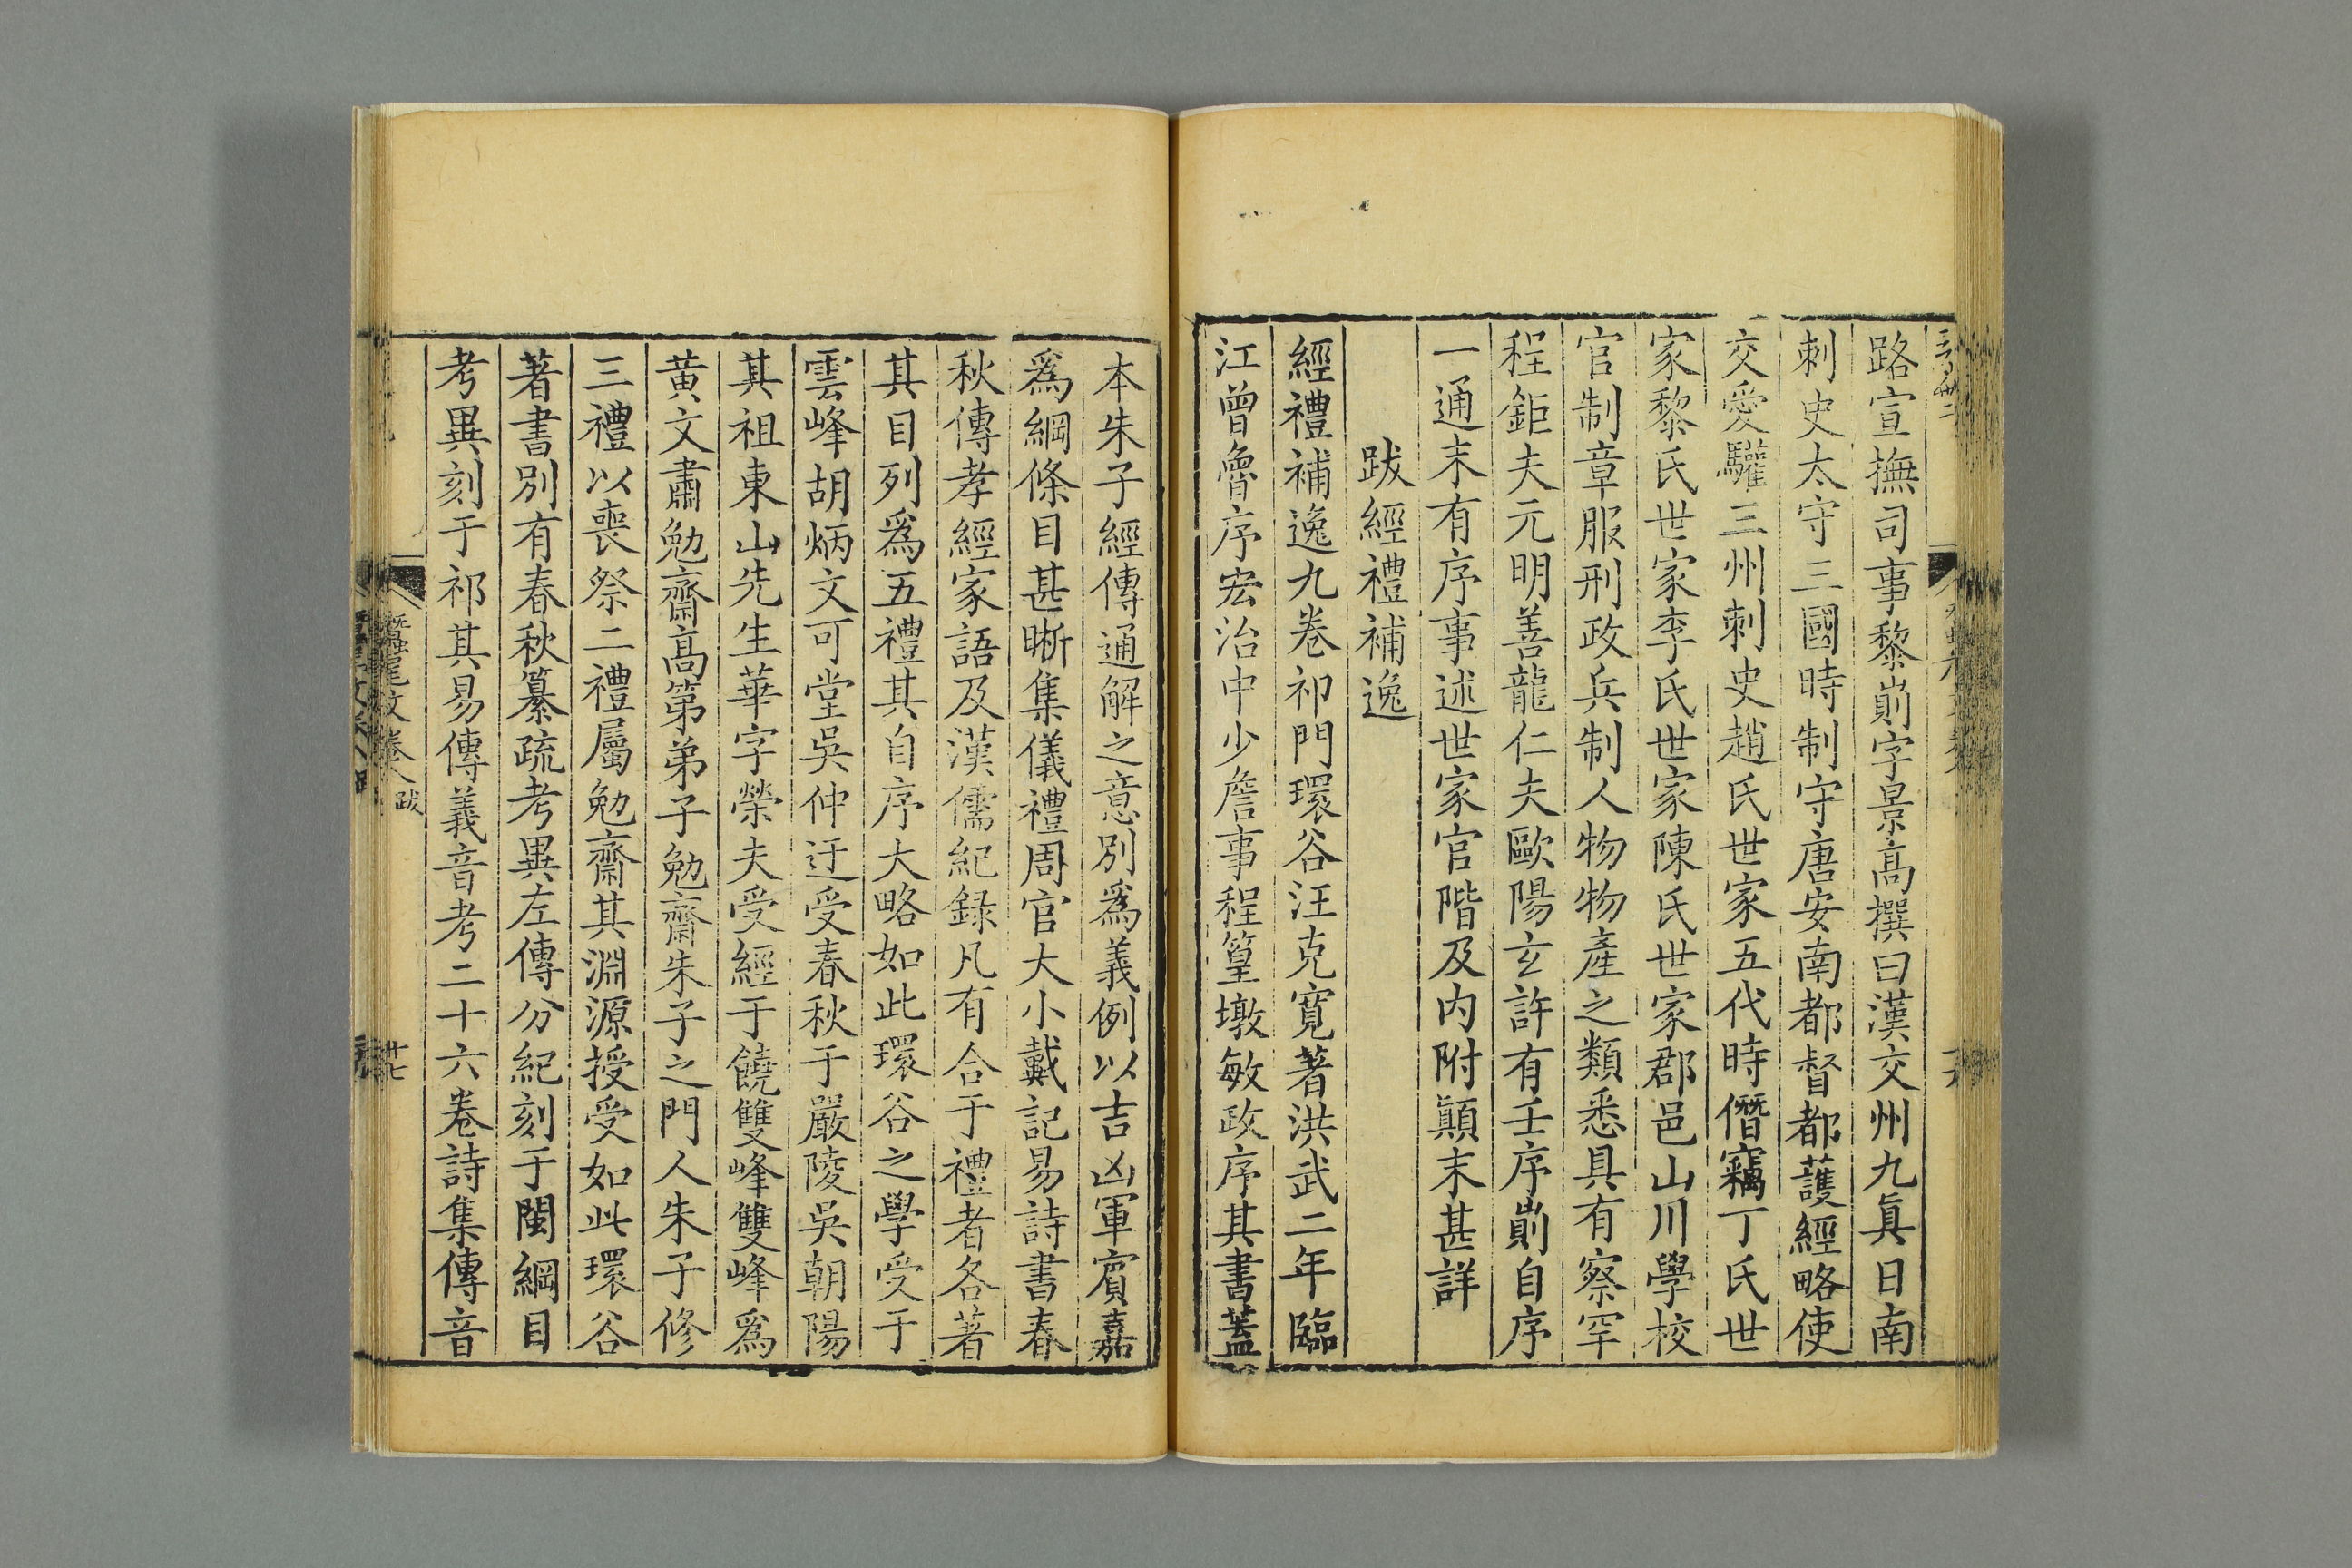 路宣撫司事黎崱字景高撰曰漢交州九眞日南
刺史太守三國時制守唐安南都督都護經略使
交愛驩三州刺史趙氏世家五代時僭竊丁氏世
家黎氏世家李氏世家陳氏世家郡邑山川學校
官制章服刑政兵制人物物產之類悉具有察罕
程鉅夫元明善龍仁夫歐陽玄許有壬序崱自序
一通末有序事述世家官階及内附顛末甚詳
跋經禮補逸
經禮補逸九卷祁門環谷汪克寬著洪武二年臨
江曾魯序宏治中少詹事程篁墩敏政序其書蓋
本朱子經傳通解之意別爲義例以吉凶軍賓嘉
爲綱條目甚晰集儀禮周官大小戴記易詩書春
秋傳孝經家語及漢儒紀録凡有合于禮者各著
其目列爲五禮其自序大略如此環谷之學受于
雲峰胡炳文可堂吳仲迂受春秋于嚴陵吳朝陽
其祖東山先生華字榮夫受經于饒雙峰雙峰爲
黄文肅勉齋高第弟子勉齋朱子之門人朱子修
三禮以喪祭二禮屬勉齋其淵源授受如此環谷
著書別有春秋纂疏考異左傳分紀刻于閩綱目
考異刻于祁其易傳義音考二十六卷詩集傳音
蠶尾文卷八 跋
廿七